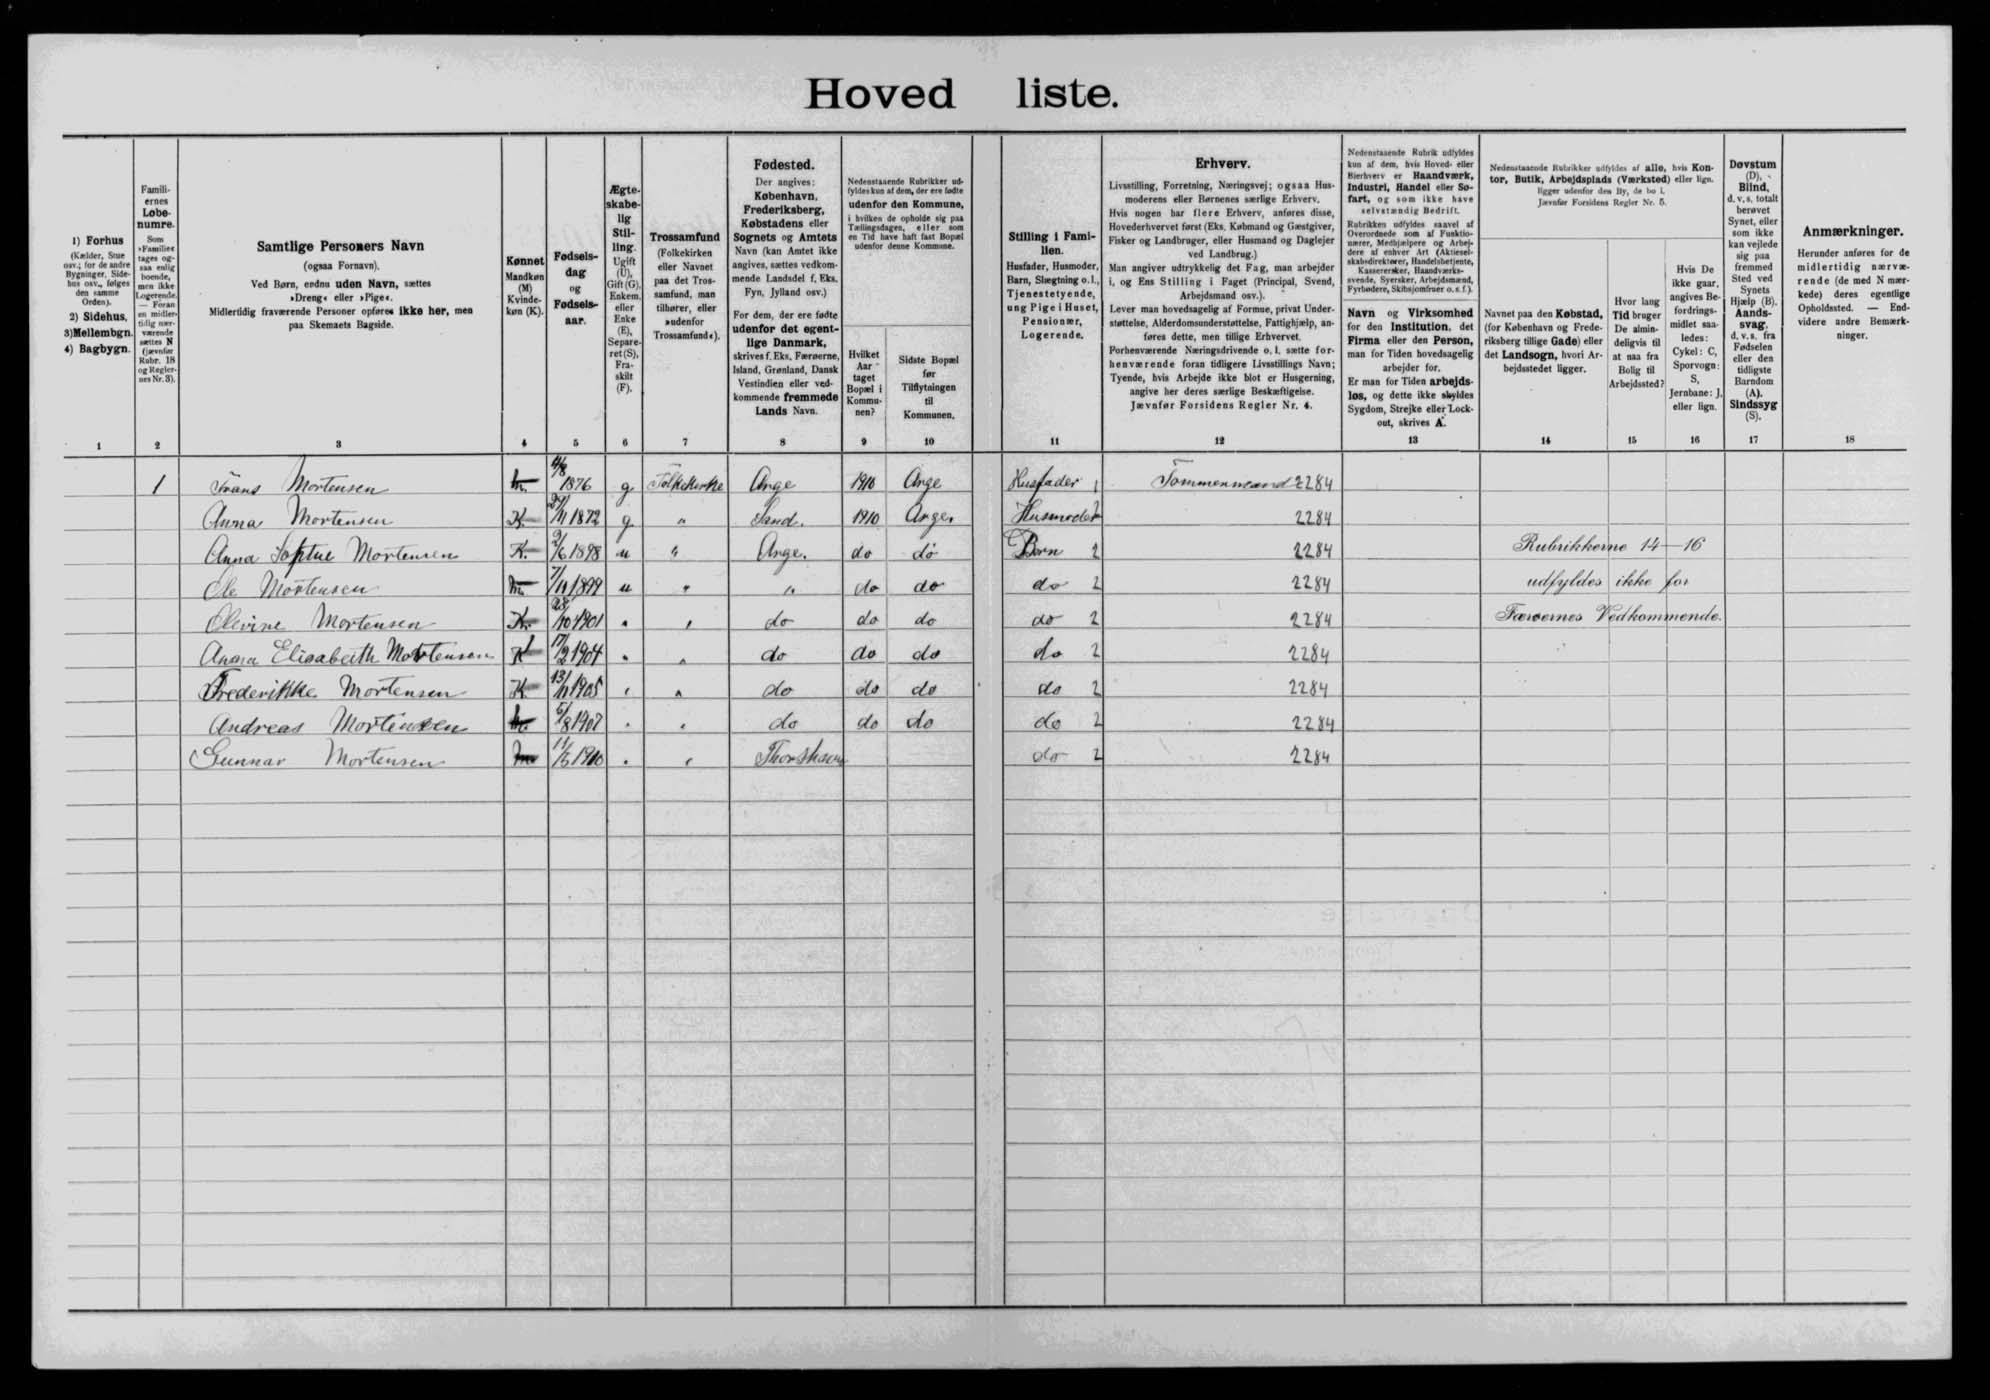 Hoved liste.
1) Forhus
(Kælder, Stue
osv.; for de andre
Bygninger, Side-
hus osv., følges
den samme
Orden).
2) Sidehus,
3) Mellembgn.
4) Bagbygn.
Famili-
ernes
Løbe-
numre.
Som
»Familie«
tages og-
saa enlig
boende,
men ikke
Logerende.
— Foran
en midler-
tidig nær-
værende
sættes N
(jævnfør
Rubr. 18
og Regler-
nes Nr. 3).
Samtlige Personers Navn
(ogsaa Fornavn).
Ved Børn, endnu uden Navn, sættes
»Dreng« eller »Pige«.
Midlertidig fraværende Personer opføres ikke her, men
paa Skemaets Bagside.
Kønnet
Mandkøn
(M)
Kvinde-
køn (K).
Fødsels-
dag
og
Fødsels-
aar.
Ægte-
skabe-
lig
Stil-
ling.
Ugift
(U),
Gift (G),
Enkem.
eller
Enke
(E),
Separe-
ret (S),
Fra-
skilt
(F).
Trossamfund
(Folkekirken
eller Navnet
paa det Tros-
samfund, man
tilhører, eller
»udenfor
Trossamfund«).
Fødested.
Der angives:
København,
Frederiksberg,
Købstadens eller
Sognets og Amtets
Navn (kan Amtet ikke
angives, sættes vedkom-
mende Landsdel f. Eks.
Fyn, Jylland osv.)
For dem, der ere fødte
udenfor det egent-
lige Danmark,
skrives f. Eks. Færøerne,
Island, Grønland, Dansk
Vestindien eller ved-
kommende fremmede
Lands Navn.
Nedenstaaende Rubrikker ud-
fyldes kun af dem, der ere fødte
udenfor den Kommune,
i hvilken de opholde sig paa
Tællingsdagen, eller som
en Tid have haft fast Bopæl
udenfor denne Kommune.
Hvilket
Aar
taget
Bopæl i
Kommu-
nen?
Sidste Bopæl
før
Tilflytningen
til
Kommunen.
Stilling i Fami-
lien.
Husfader, Husmoder,
Barn, Slægtning o. l.,
Tjenestetyende,
ung Pige i Huset,
Pensionær,
Logerende.
Erhverv.
Livsstilling, Forretning, Næringsvej; ogsaa Hus-
moderens eller Børnenes særlige Erhverv.
Hvis nogen har flere Erhverv, anføres disse,
Hovederhvervet først (Eks. Købmand og Gæstgiver,
Fisker og Landbruger, eller Husmand og Daglejer
ved Landbrug.)
Man angiver udtrykkelig det Fag, man arbejder
i, og Ens Stilling i Faget (Principal, Svend,
Arbejdsmand osv.).
Lever man hovedsagelig af Formue, privat Under-
støttelse, Alderdomsunderstøttelse, Fattighjælp, an-
føres dette, men tillige Erhvervet.
Forhenværende Næringsdrivende o. l. sætte for-
henværende foran tidligere Livsstillings Navn;
Tyende, hvis Arbejde ikke blot er Husgerning,
angive her deres særlige Beskæftigelse.
Jævnfør Forsidens Regler Nr. 4.
Nedenstaaende Rubrik udfyldes
kun af dem, hvis Hoved- eller
Bierhverv er Haandværk,
Industri, Handel eller Sø-
fart, og som ikke have
selvstændig Bedrift.
Rubrikken udfyldes saavel af
Overordnede som af Funktio-
nærer, Medhjælpere og Arbej-
dere af enhver Art (Aktiesel-
skabsdirektører, Handelsbetjente,
Kassererskér, Haandværks-
svende, Syersker, Arbejdsmænd,
Fyrbødere, Skibsjomfruer o. s. f.).
Navn og Virksomhed
for den Institution, det
Firma eller den Person,
man for Tiden hovedsagelig
arbejder for.
Er man for Tiden arbejds-
løs, og dette ikke skyldes
Sygdom, Strejke eller Lock-
out, skrives A.
Nedenstaaende Rubrikker udfyldes af alle, hvis Kon-
tor, Butik, Arbejdsplads (Værksted) eller lign.
ligger udenfor den By, de bo i.
Jævnfør Forsidens Regler Nr. 5.
Navnet paa den Købstad,
(for København og Frede-
riksberg tillige Gade) eller
det Landsogn, hvori Ar-
bejdsstedet ligger.
Hvor lang
Tid bruger
De almin-
deligvis til
at naa fra
Bolig til
Arbejdssted?
Hvis De
ikke gaar,
angives Be-
fordrings-
midlet saa-
ledes:
Cykel: C,
Sporvogn:
S,
Jernbane: J,
eller lign.
Døvstum
(D),
Blind,
d. v. s. totalt
berøvet
Synet, eller
som ikke
kan vejlede
sig paa
fremmed
Sted ved
Synets
Hjælp (B).
Aands-
svag,
d. v. s. fra
Fødselen
eller den
tidligste
Barndom
(A).
Sindssyg
(S).
Anmærkninger.
Herunder anføres for de
midlertidig nærvæ-
rende (de med N mær-
kede) deres egentlige
Opholdssted. — End-
videre andre Bemærk-
ninger.
1 2 3 4 5 6 7 8 9 10 11 12 13 14 15 16 17 18
1 Frans Mortensen m. 11/8 1876 g Folkekirke Ange 1910 Ange Husfader 1 Tømmermand 2284
Anna Mortensen K. 29/11 1872 g " Sand. 1910 Ange. Husmoder 2 2284
Anna Sophie Mortensen K. 2/6 1898 u " Ange. do do Børn 2 2284 Rubrikkerne 14–16
Ole Mortensen m. 7/11 1899 u " " do do do 2 2284 udfyldes ikke for
Olevine Mortensen K. 28/10 1901 " " do do do do 2 2284 Færøernes Vedkommende.
Anna Elisabeth Mortensen K 17/2 1904 " " do do do do 2 2284
Frederikke Mortensen K. 13/11 1905 " " do do do do 2 2284
Andreas Mortensen m. 5/8 1907 " " do do do do 2 2284
Gunnar Mortensen m 11/5 1910 " " Thorshavn do 2 2284